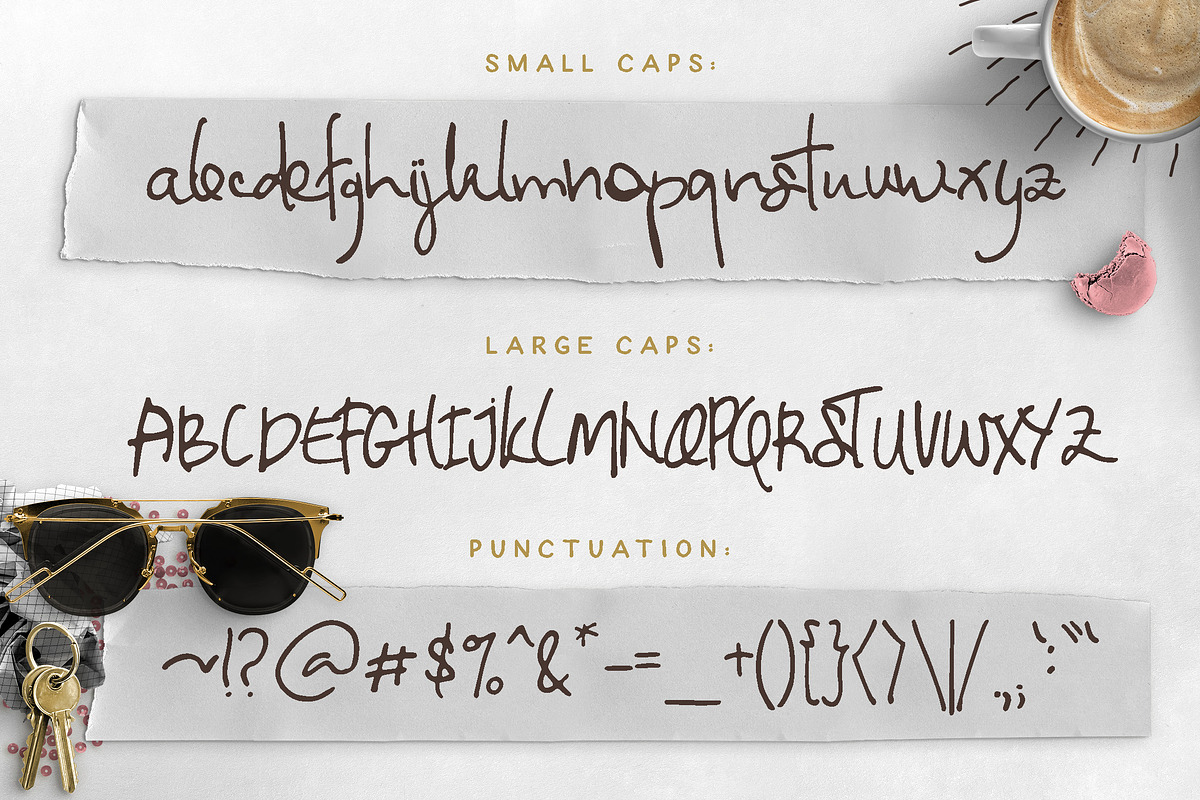 SMALL CAPS:
abcdefghijklmnopqrstuvwxyz
LARGE CAPS:
ABCDEFGHIJKLMNOPQRSTUVWXYZ
PUNCTUATION:
~!?@#$%^&*-=_+(){}<>\|/.,;:'"`